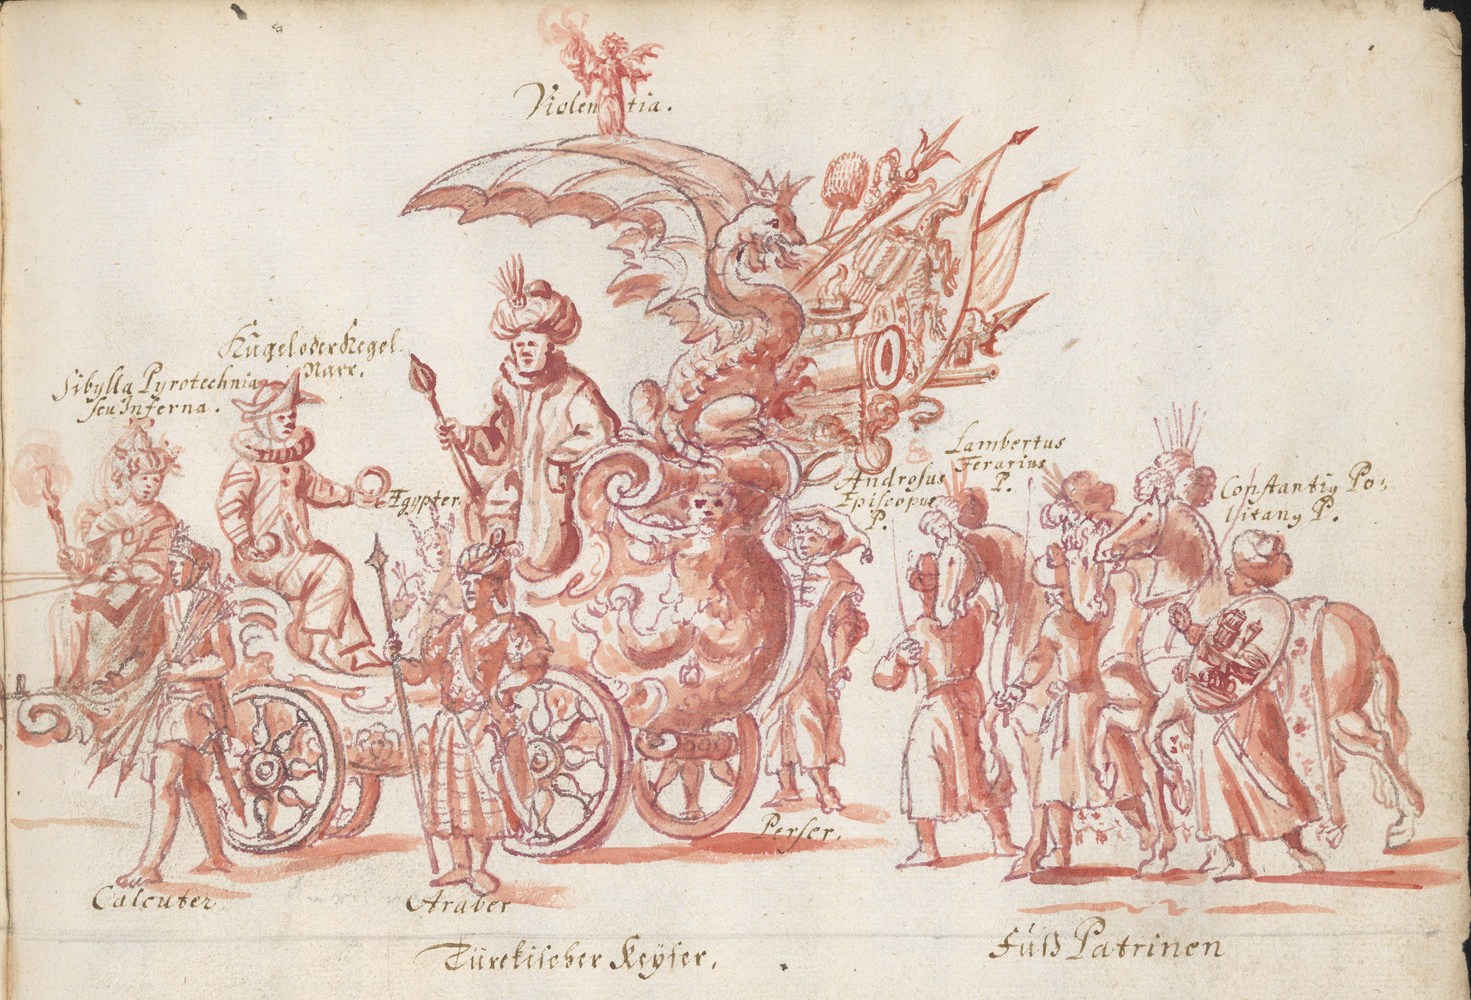 Violentia.
Kugel oder Kegel
Narr.
Sibylla Pyrotechnia
seu Inferna.
Ægypter
Lambertus
Ferarius
P.
Androsus
Episcopus
P.
Constantiꝰ Po-
litanꝰ P.
Perser.
Calcuter
Araber
Türckischer Keyser.
Füß Patrinen